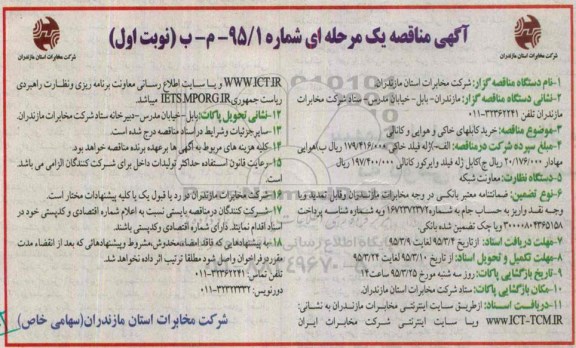 آگهی مناقصه یک مرحله ای شماره ۹۵/۱- م- ب (نوبت اول)
شرکت مخابرات استان مازندران
شرکت مخابرات استان مازندران
۱-نام دستگاه مناقصه گزار: شرکت مخابرات استان مازندران
۲-نشانی دستگاه مناقصه گزار: مازندران- بابل- خیابان مدرس- ستاد شرکت مخابرات
مازندران تلفن ۳۳۳۶۲۲۴۱-۰۱۱
۳-موضوع مناقصه: خرید کابلهای خاکی و هوایی و کانالی
۴-مبلغ سپرده شرکت درمناقصه: الف-ژله فیلد خاکی ۱۷۹/۴۱۶/۰۰۰ ریال ب)هوایی
مهادار ۲۰/۱۷۶/۰۰۰ ریال ج)کابل ژله فیلد وایرکور کانالی ۱۹۷/۴۰۰/۰۰۰ ریال
۵-دستگاه نظارت: معاونت شبکه
۶-نوع تضمین: ضمانتنامه معتبر بانکی در وجه مخابرات مازندران وقابل تمدید ویا
وجه نقد واریز به حساب جام به شماره ۱۶۷۳۷۲۳۷۲ به شماره شناسه پرداخت
۳۰۰۰۰۸۰۴۳۶۵۱۵۸ ویا چک تضمین شده بانکی
۷-مهلت دریافت اسناد: از تاریخ ۹۵/۳/۴ لغایت ۹۵/۳/۹
۸-مهلت تکمیل و تحویل اسناد: از تاریخ ۹۵/۳/۱۰ لغایت ۹۵/۳/۲۴
۹-تاریخ بازگشایی پاکات: روز سه شنبه مورخ ۹۵/۳/۲۵ ساعت۱۴
۱۰-مکان بازگشایی پاکات: ستاد شرکت مخابرات استان مازندران.
۱۱-دریافت اسناد: ازطریق سایت اینترنتی مخابرات مازندران به نشانی:
WWW.ICT-TCM.IR وبا سایت اینترنتی شرکت مخابرات ایران
WWW.ICT.IR و یا سایت اطلاع رسانی معاونت برنامه ریزی ونظارت راهبردی
ریاست جمهوری IETS.MPORG.IR میباشد.
۱۲-نشانی تحویل پاکات: بابل-خیابان مدرس -دبیرخانه ستاد شرکت مخابرات مازندران.
۱۳- سایرجزئیات وشرایط در اسناد مناقصه درج شده است.
۱۴-کلیه هزینه های مربوط به آگهی ها برعهده برنده مناقصه خواهد بود.
۱۵-رعایت قانون استفاده حداکثر تولیدات داخل برای شرکت کنندگان الزامی می باشد.
است.
۱۶-شرکت مخابرات مازندران در رد یا قبول یک یا کلیه پیشنهادات مختار است.
۱۷-شرکت کنندگان درمناقصه بایستی نسبت به اعلام شماره اقتصادی و کدپستی خود در
اسناد اقدام نمایند. دارای شماره اقتصادی وکدپستی باشند.
۱۸-به پیشنهادهایی که فاقد امضاء،مخدوش،مشروط وپیشنهادهائی که بعد از انقضاء مدت
مقرردرفراخوان واصل شود مطلقا ترتیب اثر داده نخواهد شد.
تلفن تماس: ۳۳۳۶۲۲۴۱-۰۱۱
دورنویس: ۳۲۳۲۳۳۳۲-۰۱۱
شرکت مخابرات استان مازندران(سهامی خاص)